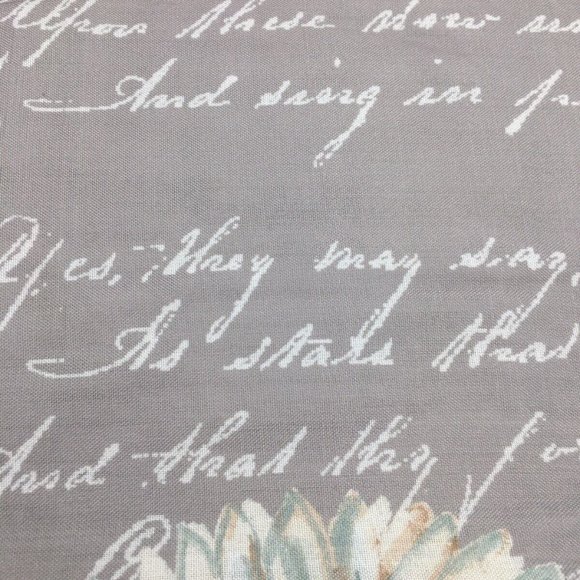 Upon these
And sing in
Yes, they may say,
As stars that
And that thy